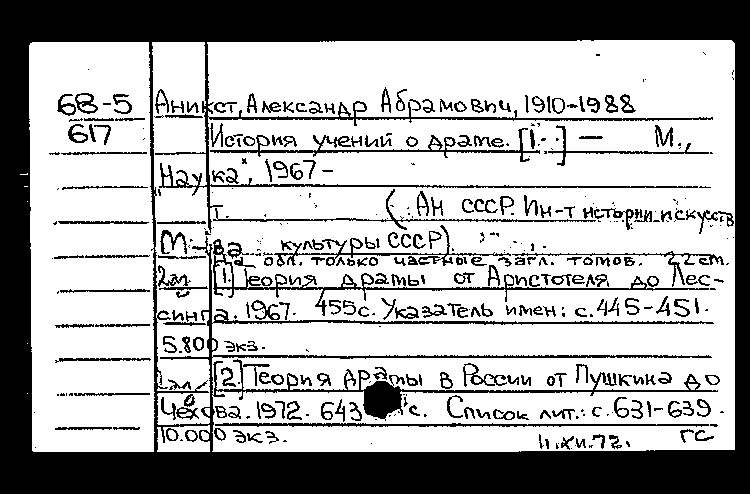 68-5 Аникст, Александр Абрамович, 1910-1988
617 История учений о драме. [1- ] — М.,
"Наука", 1967-
т. (АН СССР. Ин-т истории искусств
М-ва культуры СССР)
На обл. только частные загл. томов. 22 см.
2 эл [1] Теория драмы от Аристотеля до Лес-
синга. 1967. 455 с. Указатель имен: с. 445-451.
5.800 экз.
1 эл. [2] Теория драмы в России от Пушкина до
Чехова. 1972. 643 с. Список лит.: с. 631-639.
10.000 экз. 11.XII.72. ГС